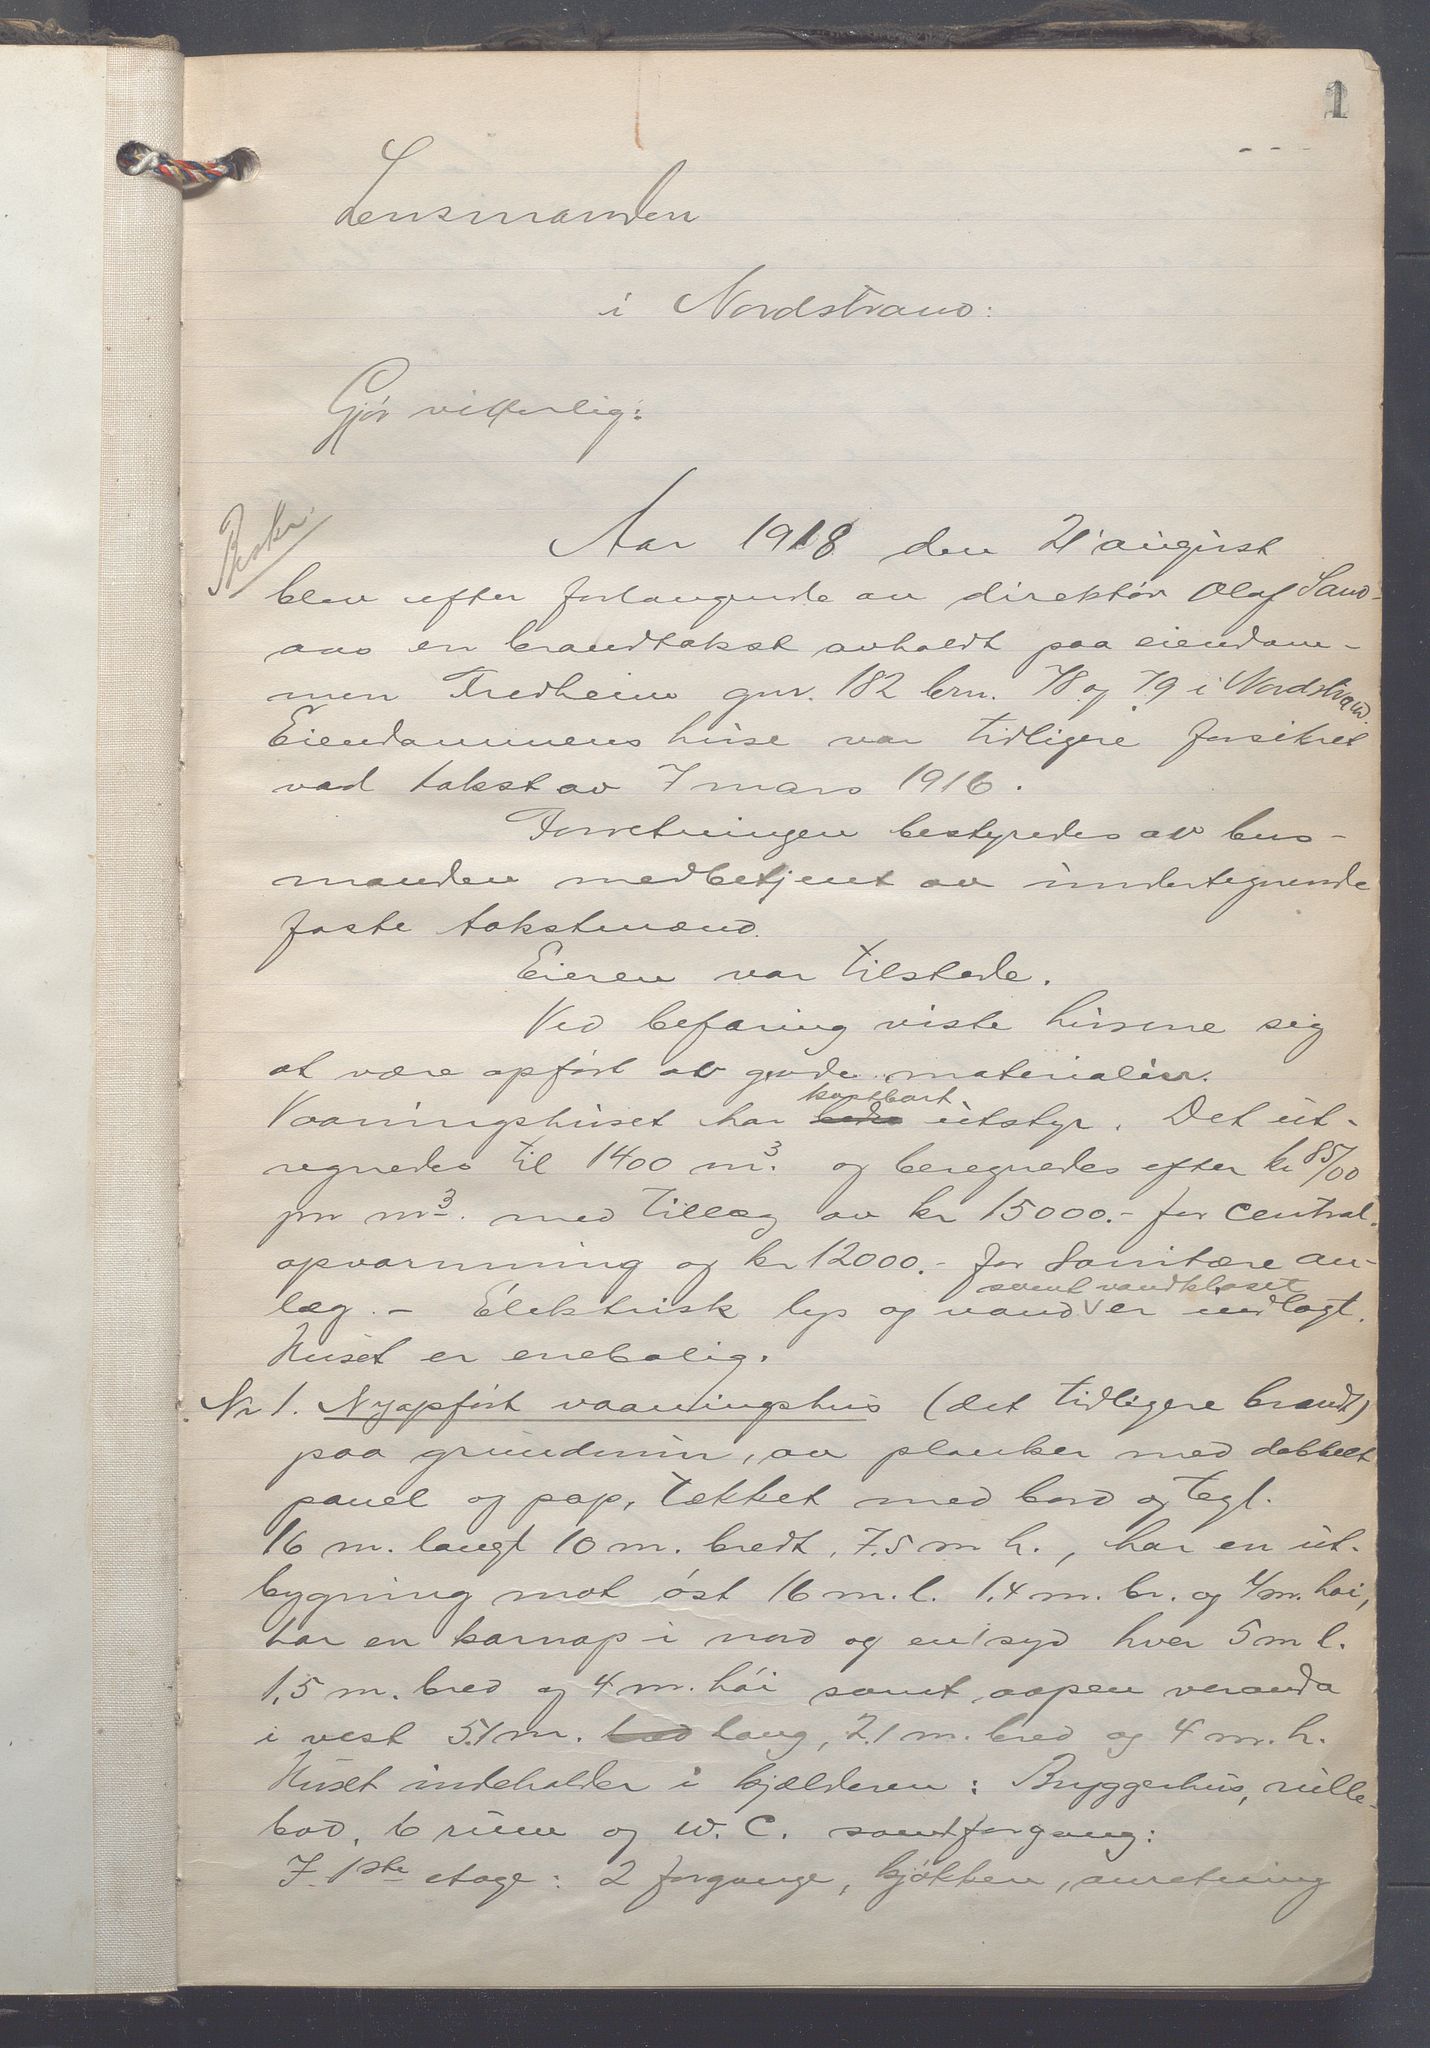 1
Lensmanden
i Nordstrand:
Gjør vitterlig:
Beskr.
Aar 1918 den 21 august
blev efter forlangende av direktør Olaf Sand-
aas en brandtakst avholdt paa eiendom-
men Fredheim gnr. 182 brn. 78 og 79 i Nordstrand.
Eiendommens huse var tidligere forsikret
ved takst av 7 mars 1916.
Forretningen bestyredes av lens-
manden medbetjent av undertegnende
faste takstmænd.
Eieren var tilstede.
Ved befaring viste husene sig
at være opført av gode materialier.
kostbart
Vaaningshuset har bedre utstyr. Det ut-
regnedes til 1400 m³. og beregnedes efter kr 85/00
pr m³. med tillæg av kr 15000.- for central-
opvarmning og kr 12000.- for Sanitære an-
samt vandkloset
læg. - Elektrisk lys og vand er indlagt.
Huset er enebolig.
Nr 1. Nyopført vaaningshus (det tidligere brandt)
paa grundmur, av planker med dobbelt
panel og pap, tækket med bord og tegl.
16 m. langt 10 m. bredt, 7.5 m h., har en ut-
bygning mot øst 16 m. l. 1.4 m. br. og 4 m. høi,
har en karnap i nord og en i syd hver 5 m l.
1,5 m. bred og 4 m. høi samt aapen veranda
i vest 5.1 m. bred lang, 2.1 m. bred og 4 m. h.
Huset indeholder i kjælderen: Bryggerhus, rulle-
bod, 6 rum og W. C. samt forgang:
I 1ste etage: 2 forgange, kjøkken, anretning